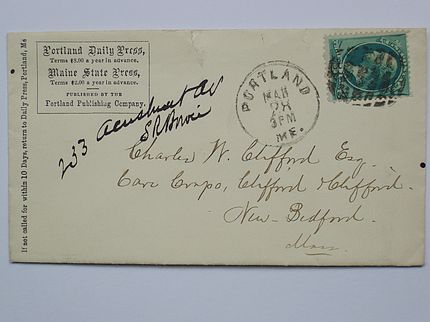 Portland Daily Press,
Terms $8.00 a year in advance.
Maine State Press,
Terms $2.00 a year in advance.
PUBLISHED BY THE
Portland Publishing Company.
If not called for within 10 Days, return to Daily Press, Portland, Me
PORTLAND
MAR
28
3PM
ME.
233 Acushnet Av
Charles W. Clifford Esq.
Care Crapo, Clifford & Clifford.
New-Bedford.
Mass.